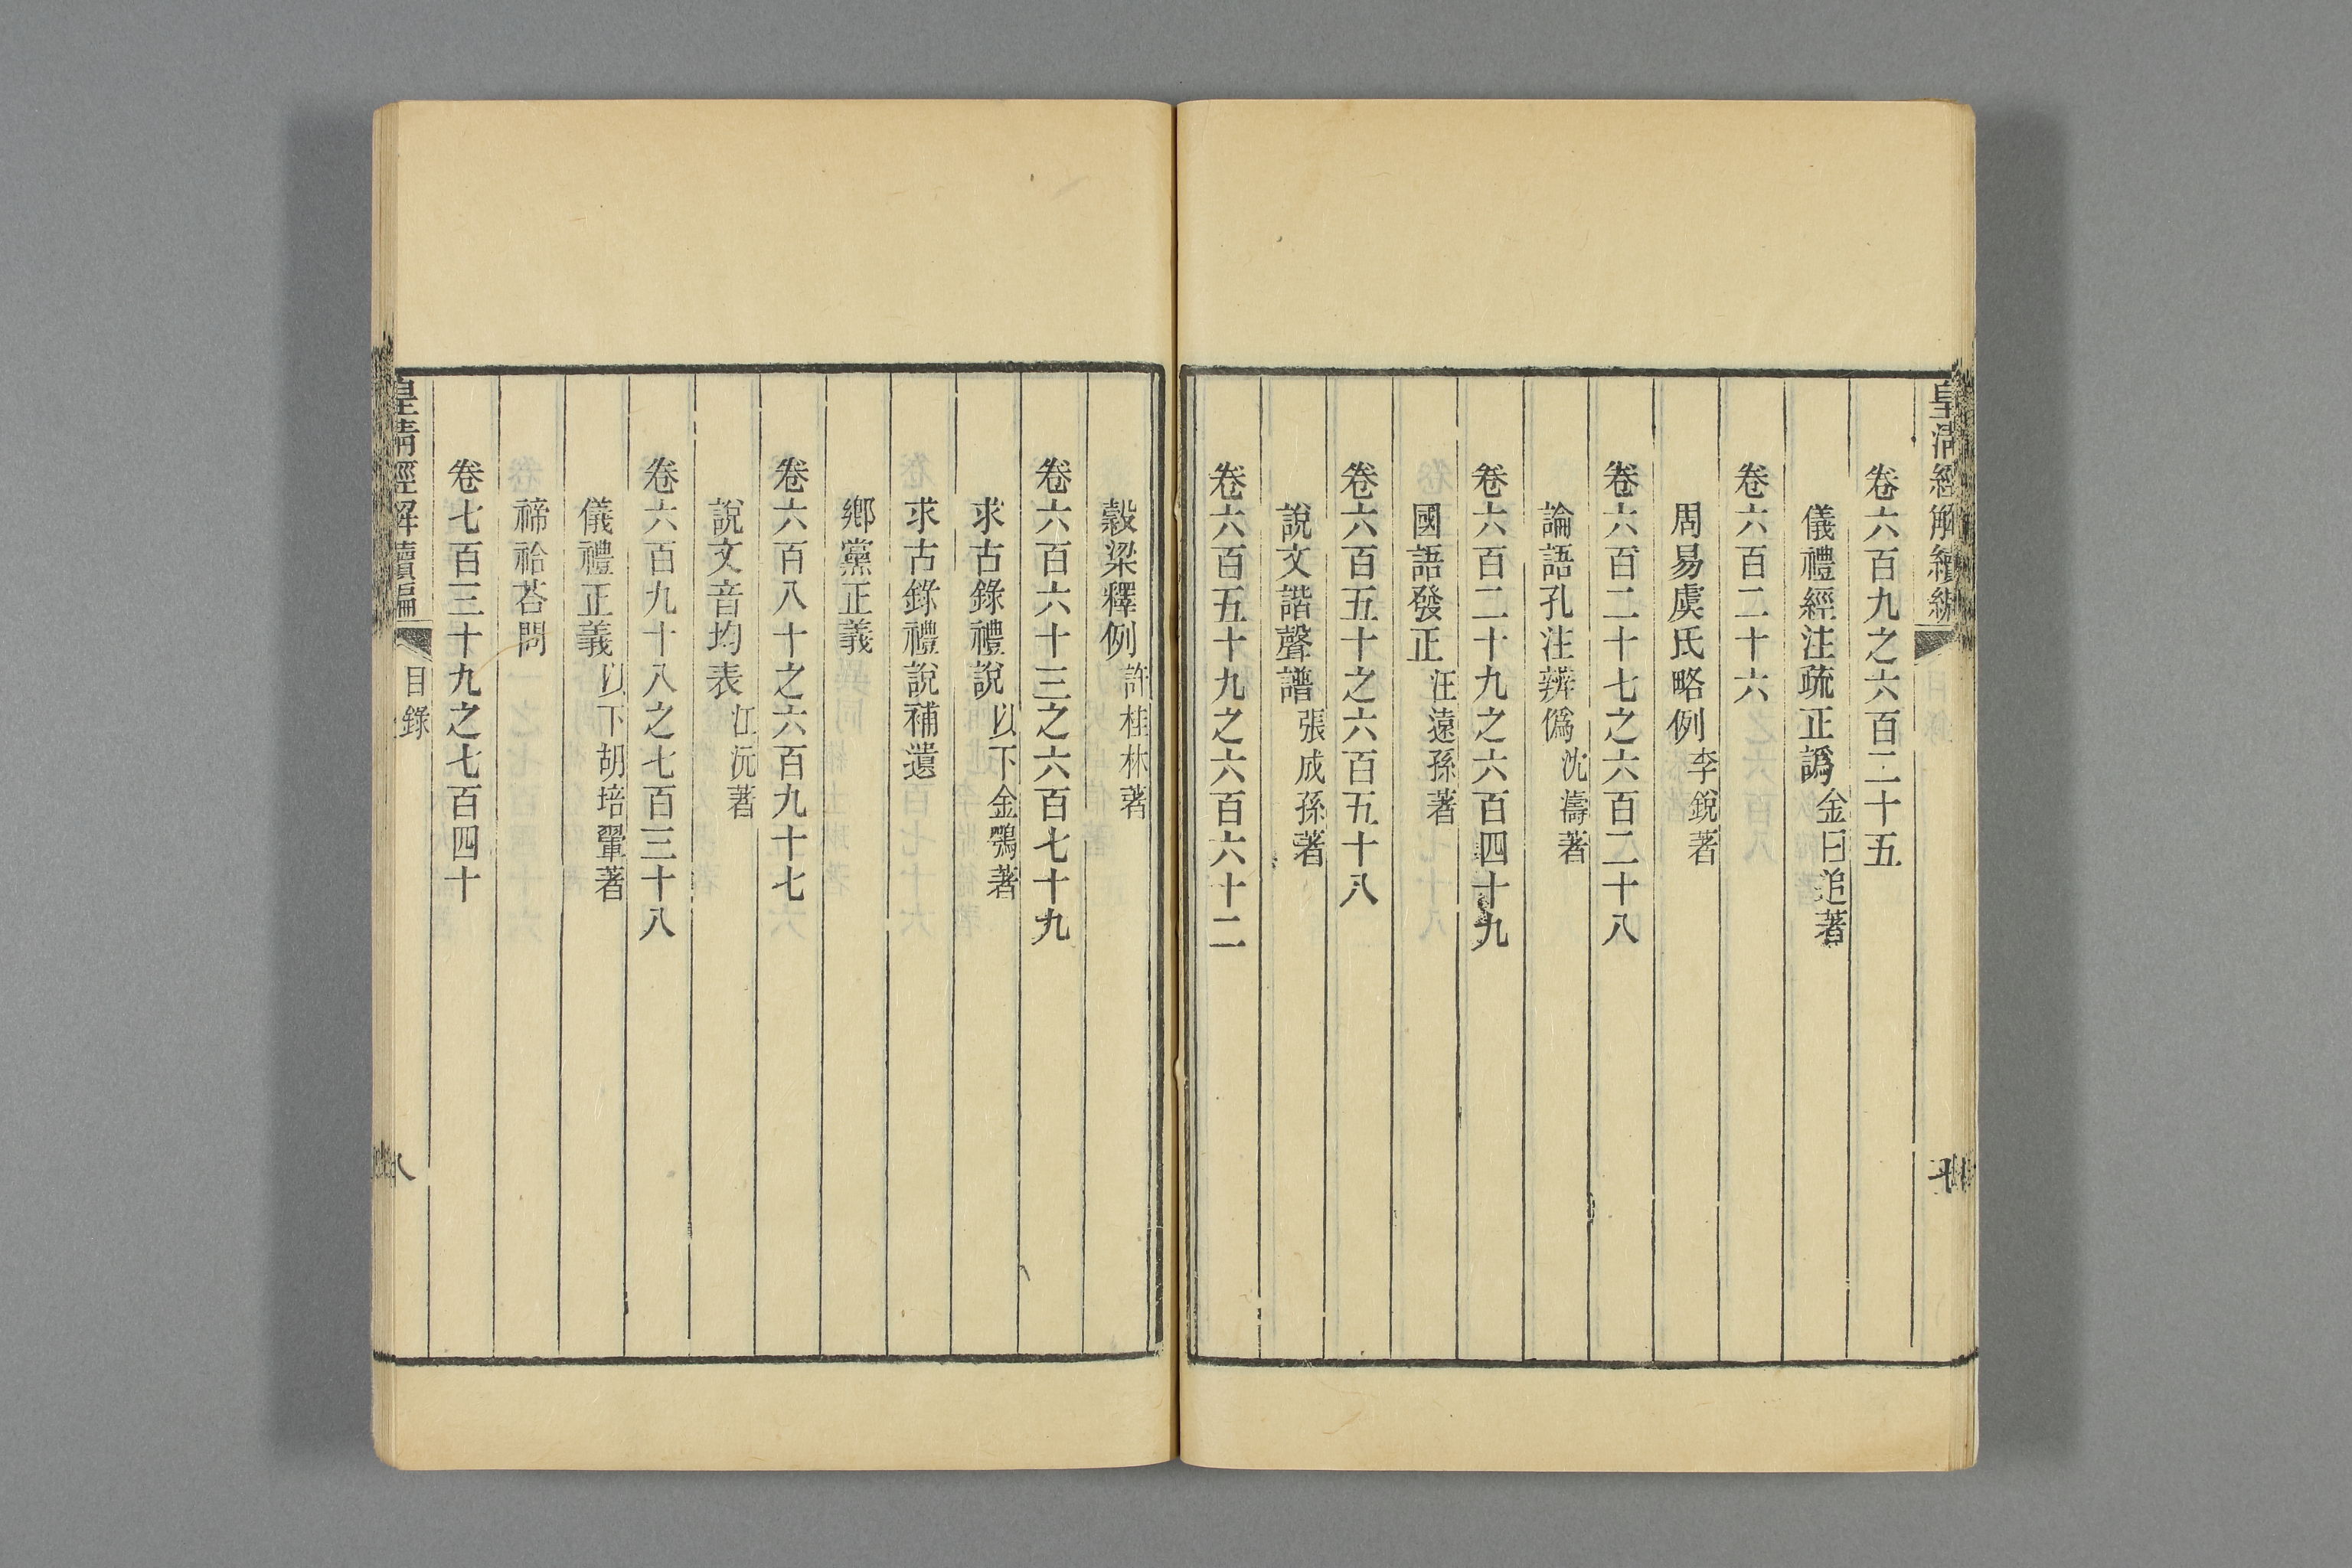 皇清經解續編
卷六百九之六百二十五
儀禮經注疏正譌金曰追著
卷六百二十六
周易虞氏略例李銳著
卷六百二十七之六百二十八
論語孔注辨僞沈濤著
卷六百二十九之六百四十九
國語發正汪遠孫著
卷六百五十之六百五十八
說文諧聲譜張成孫著
卷六百五十九之六百六十二
榖梁釋例許桂林著
卷六百六十三之六百七十九
求古錄禮說以下金鶚著
求古錄禮說補遺
鄉黨正義
卷六百八十之六百九十七
說文音均表江沅著
卷六百九十八之七百三十八
儀禮正義以下胡培翬著
禘祫荅問
卷七百三十九之七百四十
皇清經解續編 目錄 八